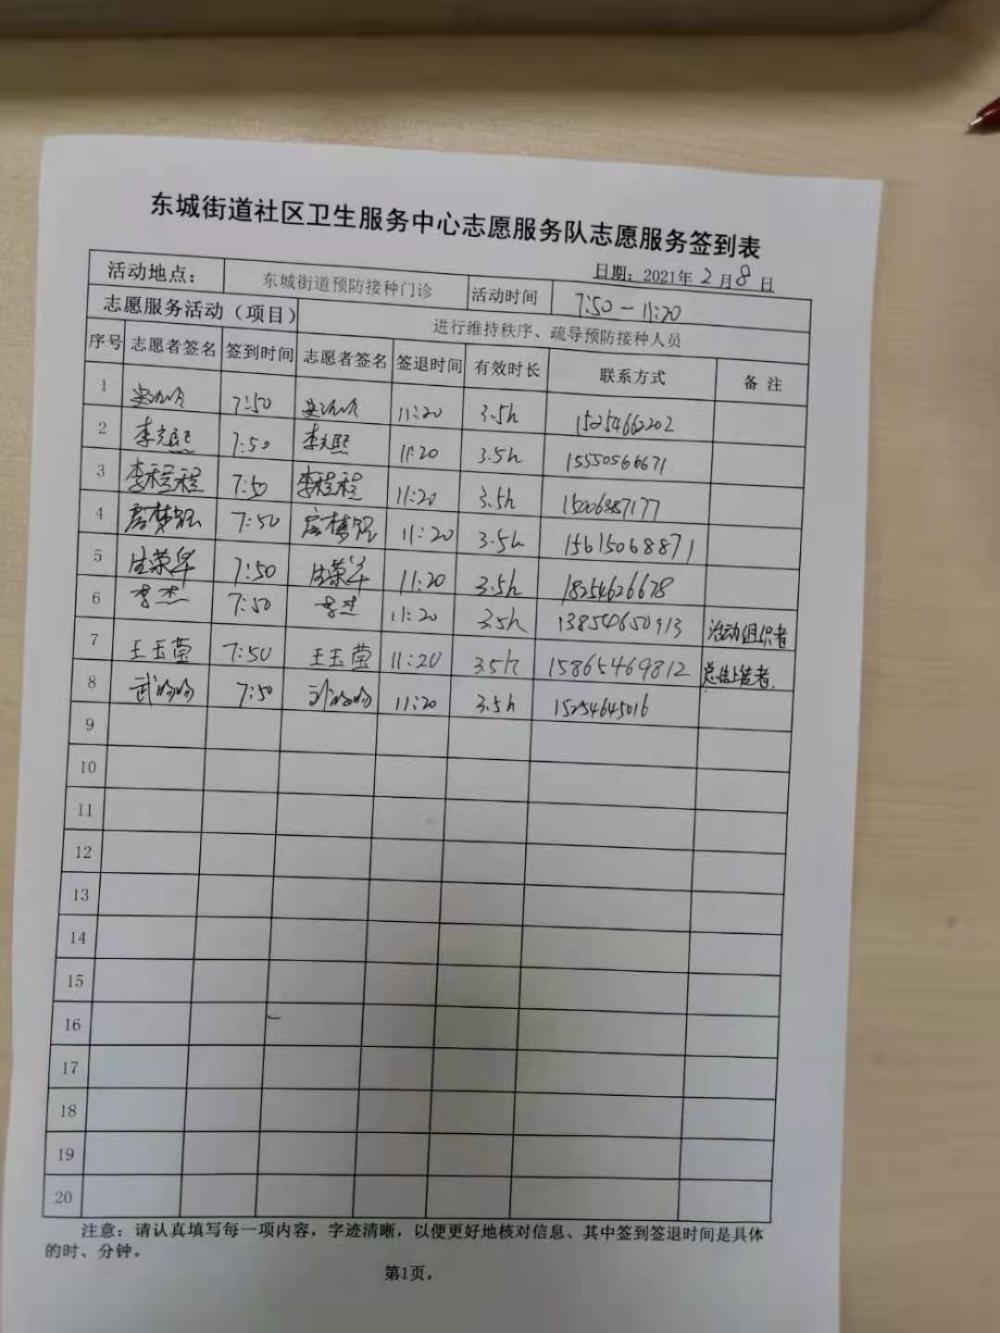 东城街道社区卫生服务中心志愿服务队志愿服务签到表
日期：2021年2月8日
活动地点： 东城街道预防接种门诊 活动时间 7:50—11:20
志愿服务活动（项目） 进行维持秩序、疏导预防接种人员
序号 志愿者签名 签到时间 志愿者签名 签退时间 有效时长 联系方式 备 注
1 7:50 11:20 3.5h 15254662202
2 李光熙 7:50 李光熙 11:20 3.5h 15550566671
3 李程程 7:50 李程程 11:20 3.5h 15006887177
4 7:50 11:20 3.5h 15615068871
5 生荣华 7:50 生荣华 11:20 3.5h 18254626678
6 李杰 7:50 李杰 11:20 3.5h 13854650913 活动组织者
7 王玉莹 7:50 王玉莹 11:20 3.5h 15865469812 总结上笔者.
8 7:50 11:20 3.5h 15254645016
9
10
11
12
13
14
15
16
17
18
19
20
注意：请认真填写每一项内容，字迹清晰，以便更好地核对信息、其中签到签退时间是具体
的时、分钟。
第1页.